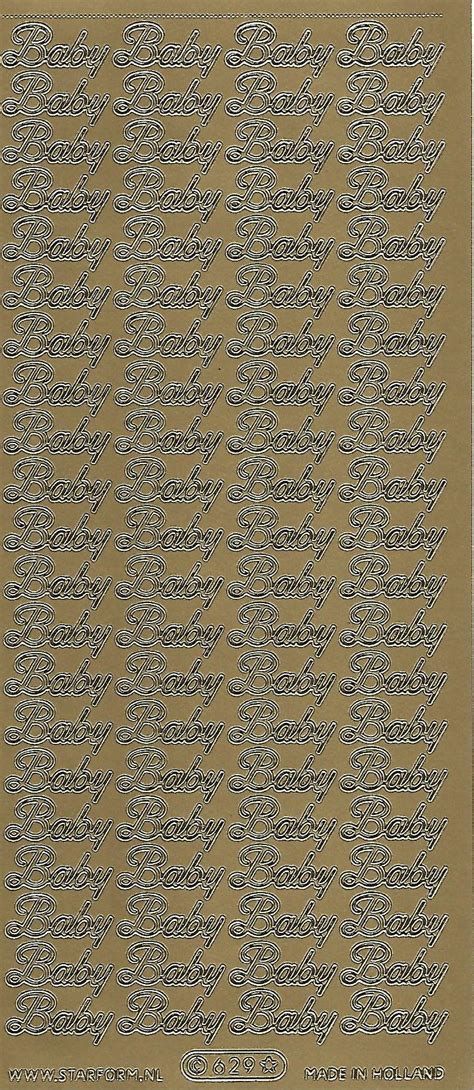 Baby Baby Baby Baby
Baby Baby Baby Baby
Baby Baby Baby Baby
Baby Baby Baby Baby
Baby Baby Baby Baby
Baby Baby Baby Baby
Baby Baby Baby Baby
Baby Baby Baby Baby
Baby Baby Baby Baby
Baby Baby Baby Baby
Baby Baby Baby Baby
Baby Baby Baby Baby
Baby Baby Baby Baby
Baby Baby Baby Baby
Baby Baby Baby Baby
Baby Baby Baby Baby
Baby Baby Baby Baby
Baby Baby Baby Baby
Baby Baby Baby Baby
Baby Baby Baby Baby
Baby Baby Baby Baby
WWW.STARFORM.NL © 629☆ MADE IN HOLLAND